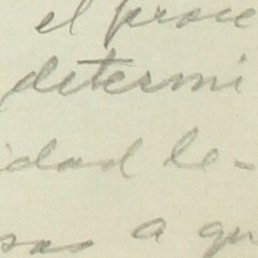 el proce
determi
idad le-
sas a qu